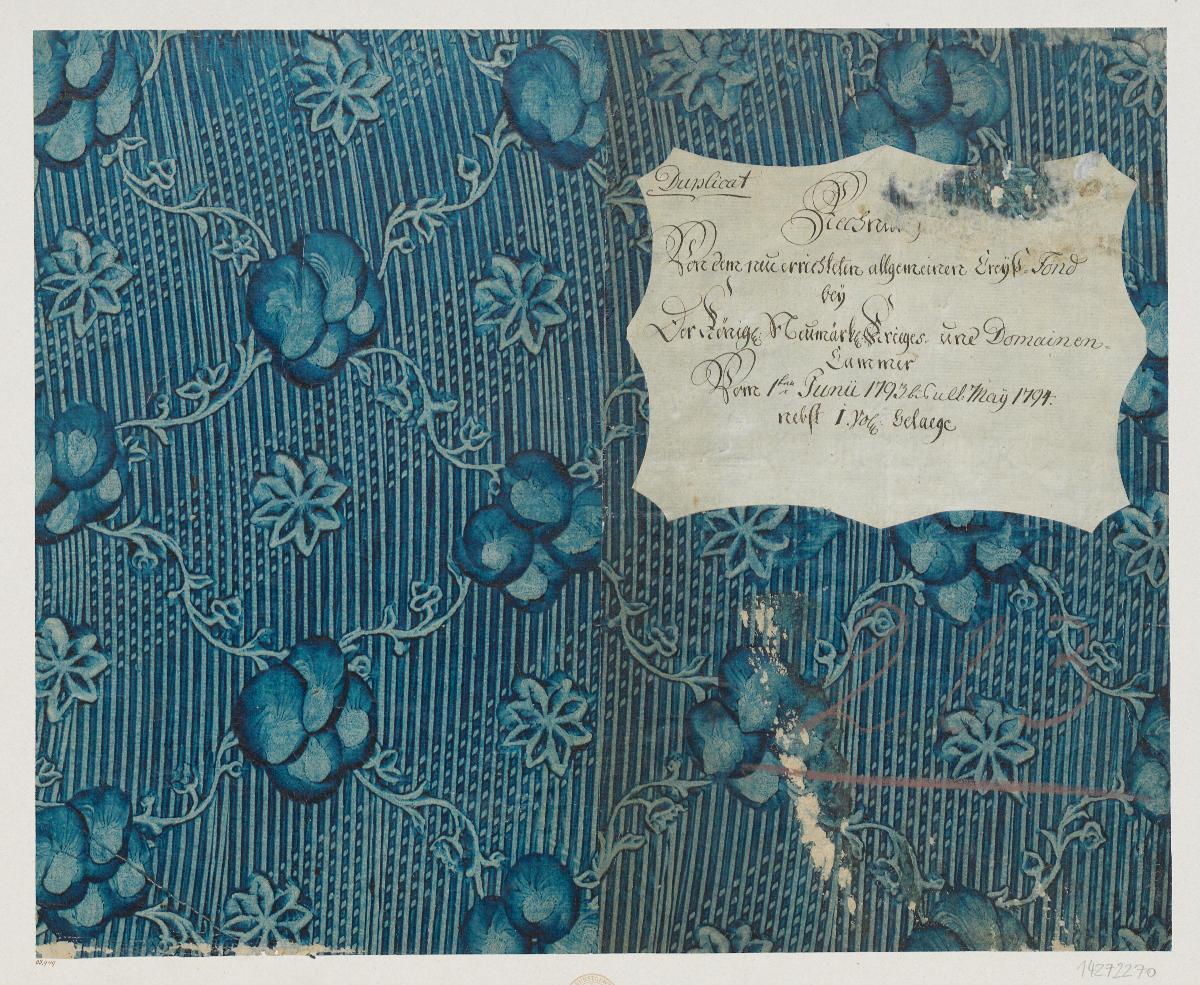 Duplicat
Rechnung
Von dem neu errichteten allgemeinen Creyß-Fond
bey
Der Königl: Neumärk: Krieges- und Domainen-
Cammer
Vom 1ten Junii 1793 bis ult. May 1794.
nebst 1. Vol: Belaege
223
14272270